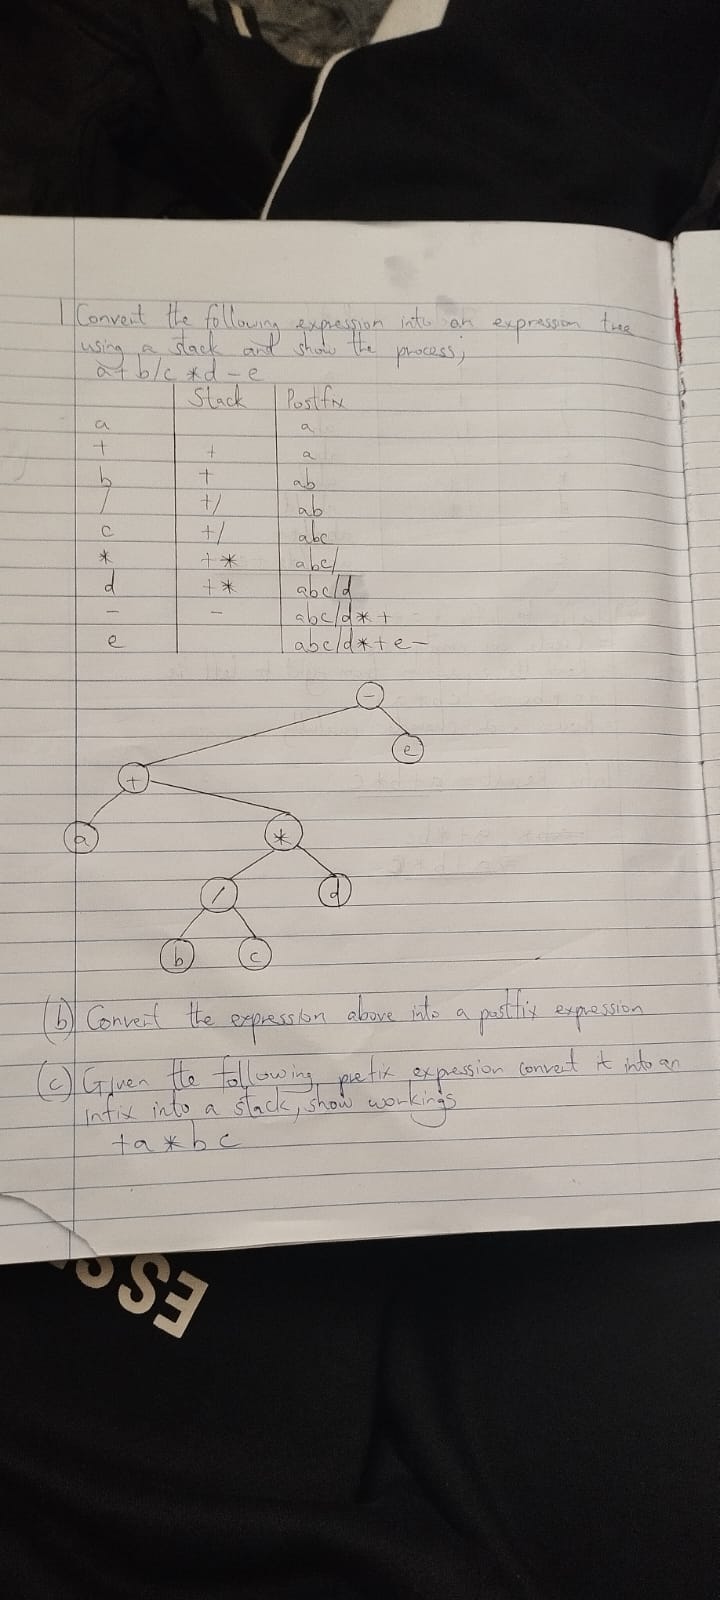 1 Convert the following expression into an expression tree
using a stack and show the process;
a+b/c*d-e
Stack Postfix
a a
+ + a
b + ab
/ +/ ab
c +/ abc
* +* abc/
d +* abc/d
- - abc/d*+
e abc/d*+e-
-
e
+
a *
/ d
b c
(b) Convert the expression above into a postfix expression
(c) Given the following prefix expression convert it into an
infix into a stack, show workings
+a*bc
ESS